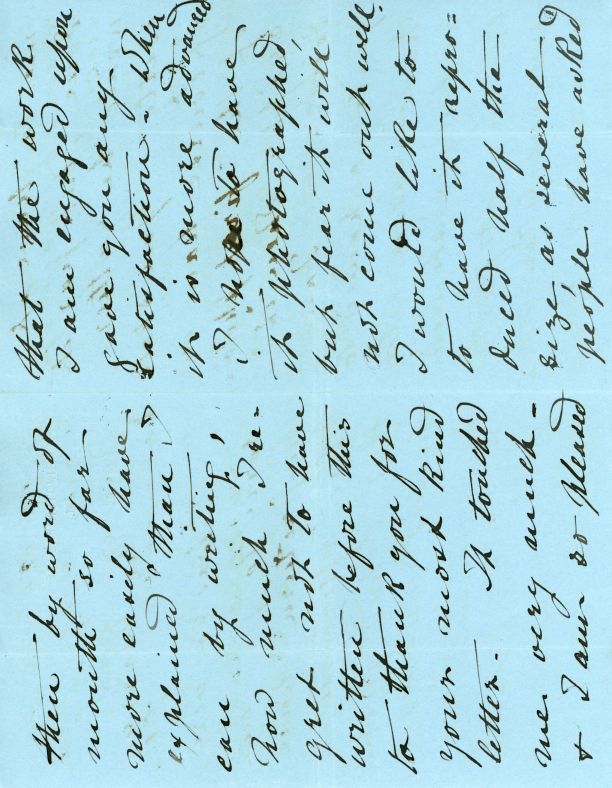 then by word of
mouth so far
more easily have
explained & than I
can by writing,
how much I re-
gret not to have
written before this
to thank you for
your most kind
letter. It touched
me very much -
& I am so pleased
that the work
I am engaged upon
gave you any
satisfaction. When
it is more advanced
I hope to have
it photographed
but fear it will
not come out well.
I would like to
to have it repro=
duced half the
size, as several
people have asked